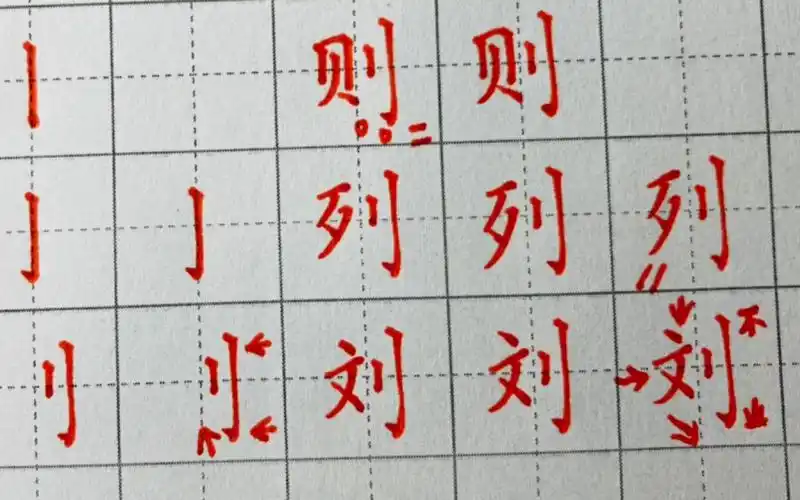 亅 则 则
亅 亅 列 列 列
刂 刂 刘 刘 刘